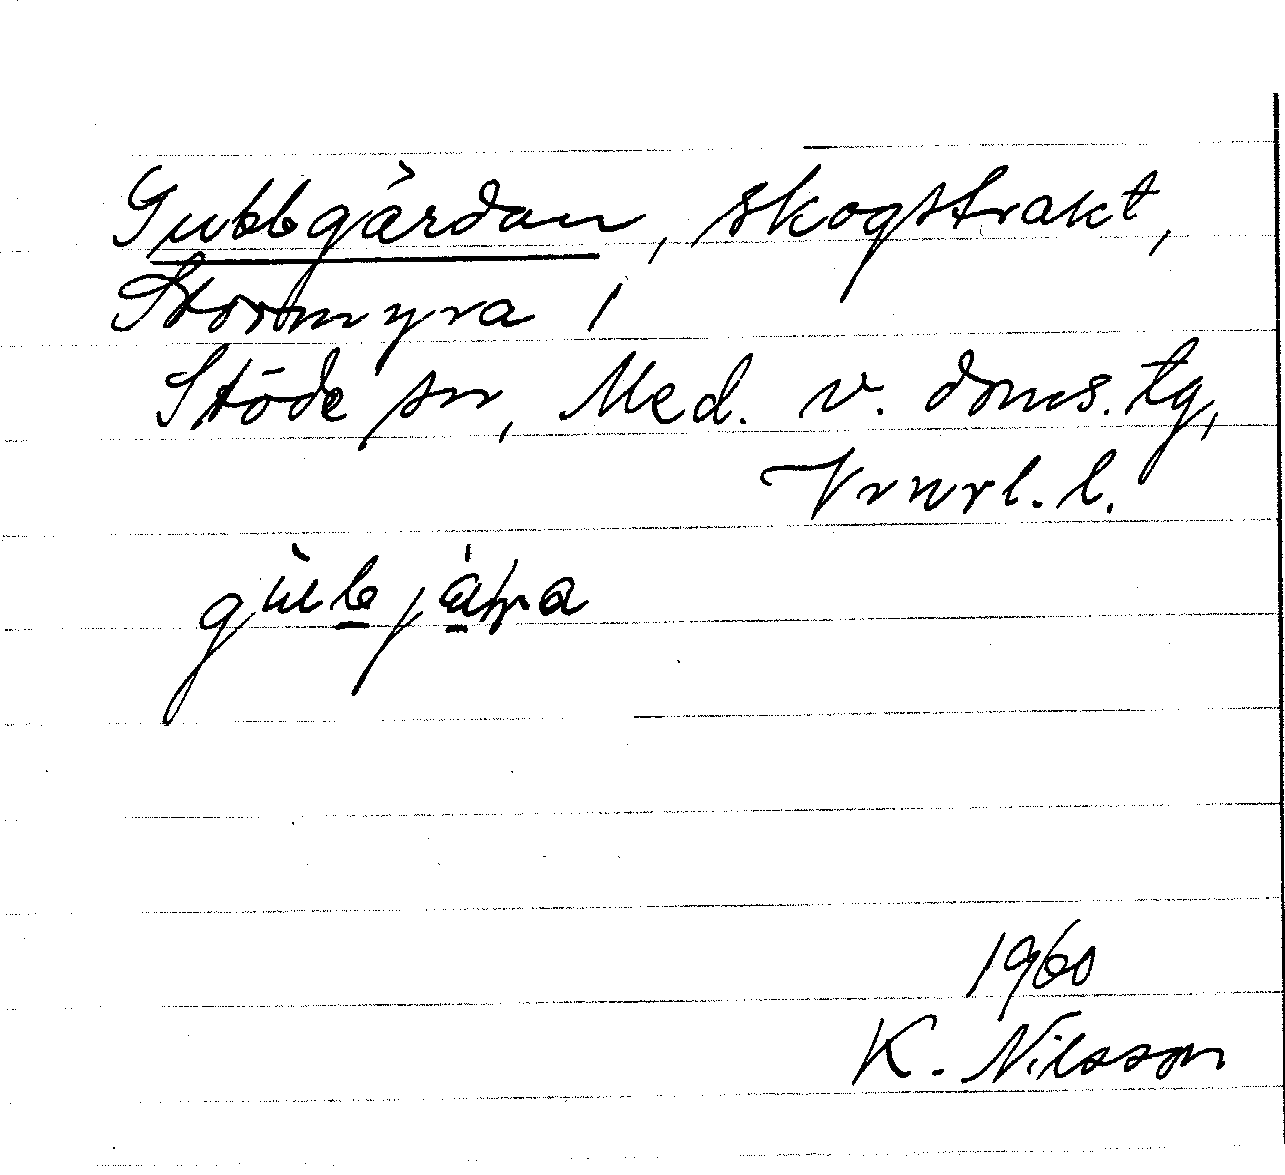 Gubbgårdan, skogstrakt,
Stormyra 1
Stöde sn, Med. v. doms. tg,
Vrnrl. l.
1960
K. Nilsson